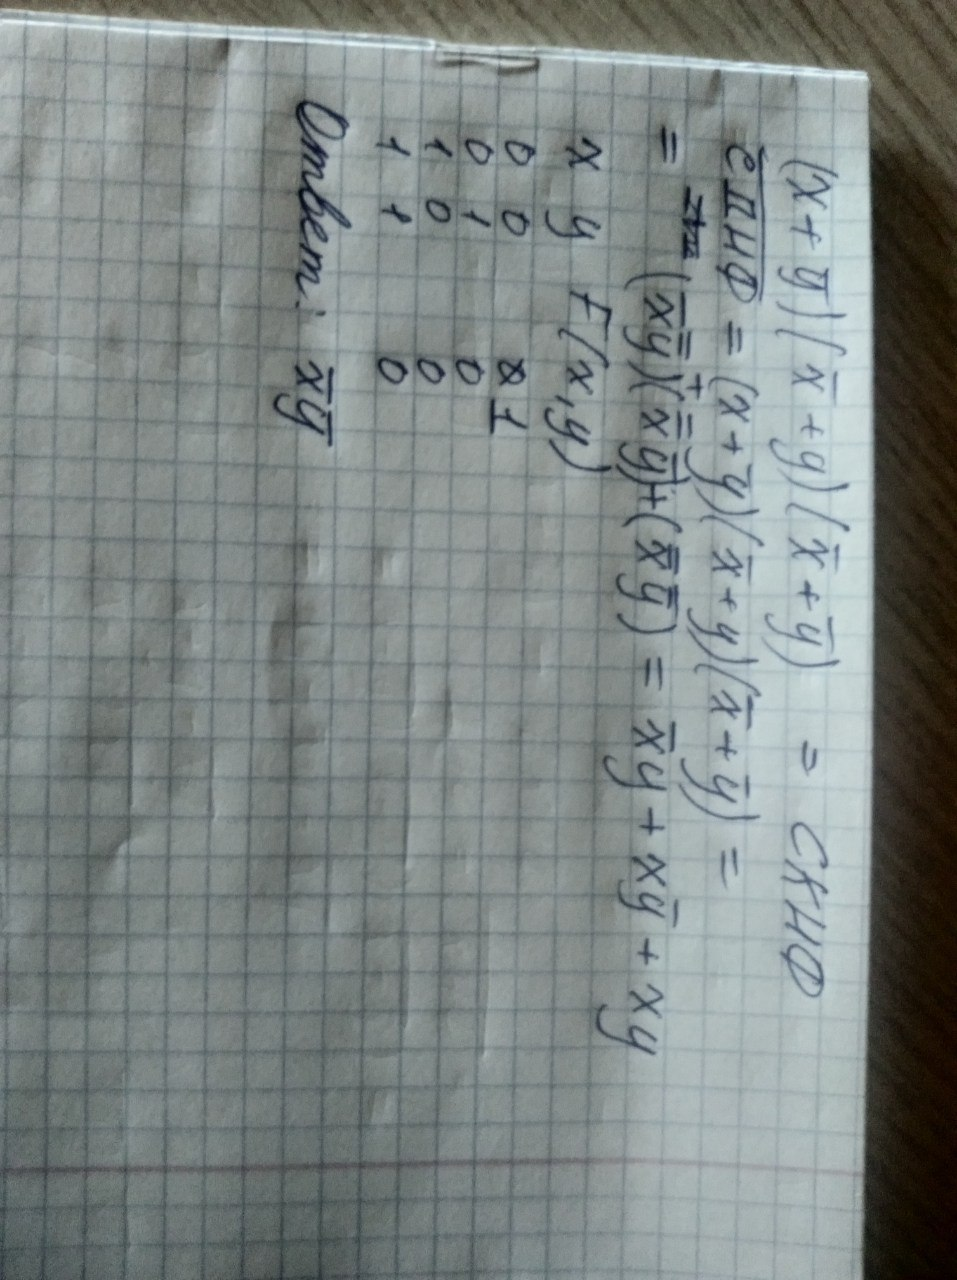 (x + y̅)(x̅ + y)(x̅ + y̅) = СКНФ
СДНФ = (x + y̅)(x̅ + y)(x̅ + y̅) =
= (x̅ y̿) + (x̿ y̅) + (x̿ y̿) = x̅y + xy̅ + xy
x y F(x,y)
0 0 1
0 1 0
1 0 0
1 1 0
Ответ: x̅ y̅